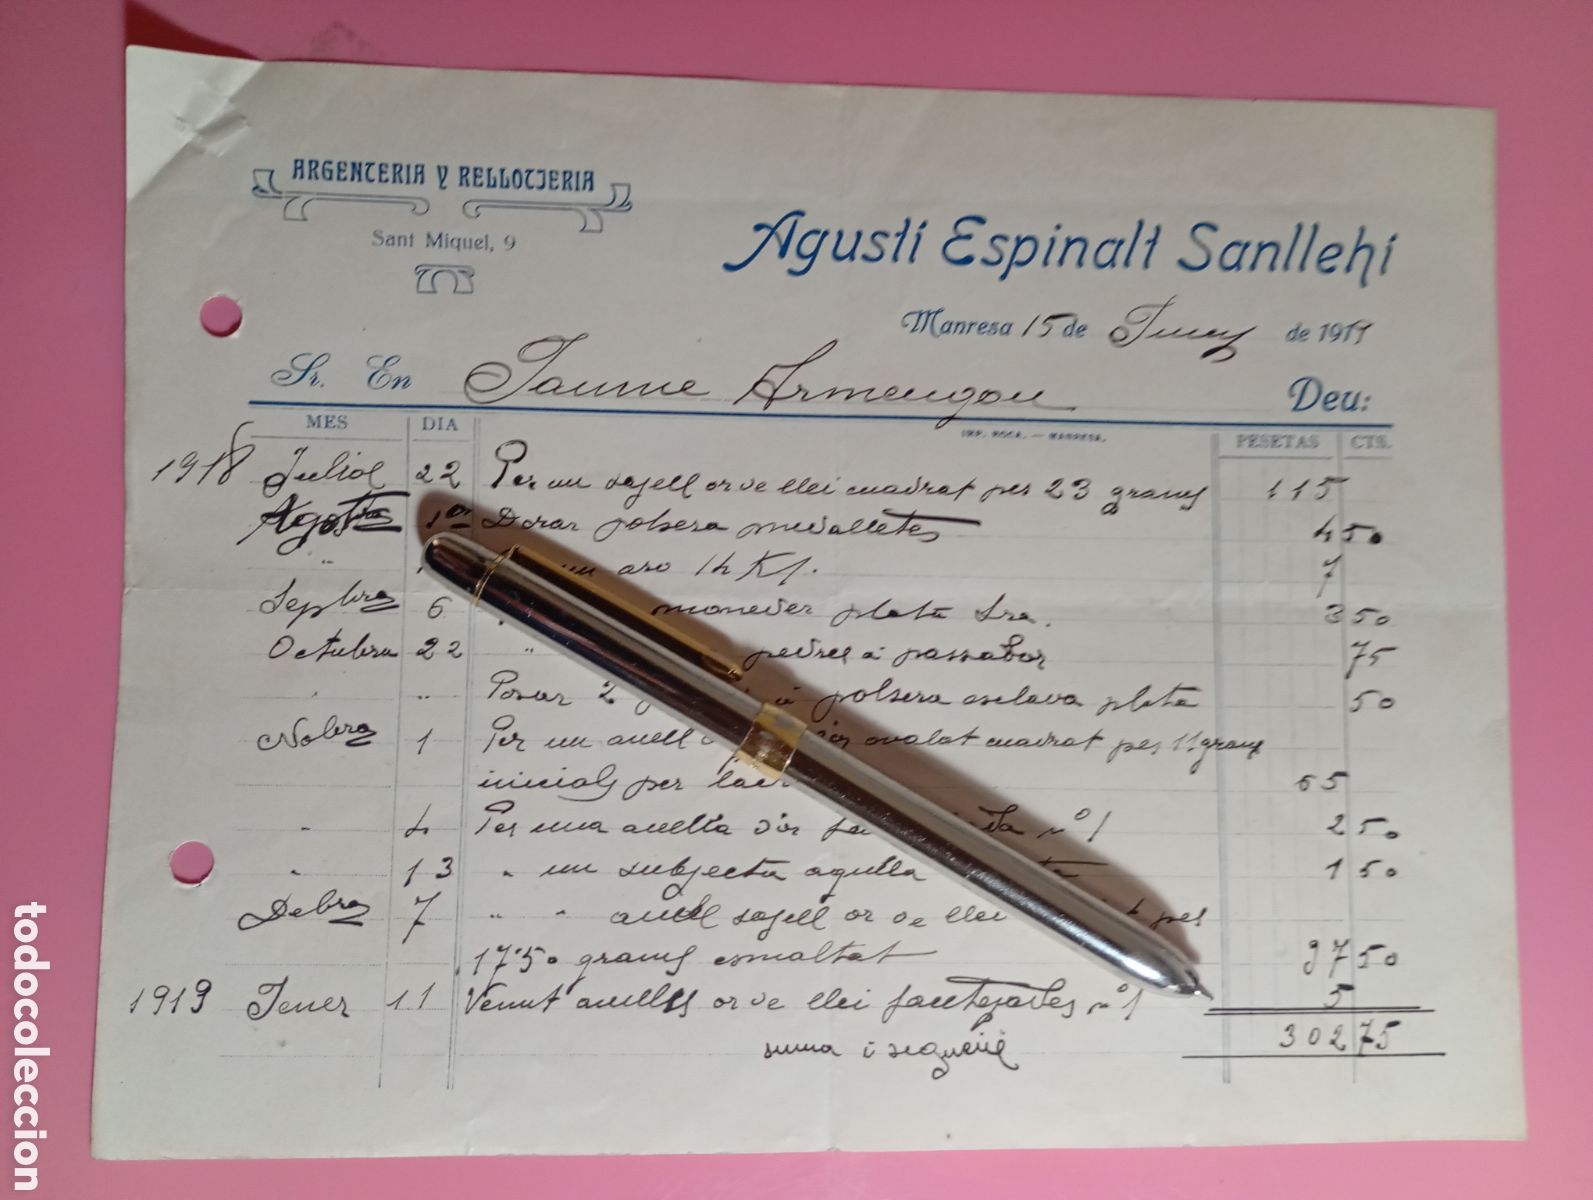 ARGENTERIA Y RELLOTJERIA
Sant Miquel, 9
Agustí Espinalt Sanllehí
Manresa 15 de Juny de 1919
Sr. En Jaume Armengou Deu:
IMP. ROCA. — MANRESA.
MES DIA PESETAS CTS.
1918 Juliol 22 Per un sagell or de llei cuadrat pes 23 grams 115
Agost 1er Dorar polsera medalletes 4 50
" un aro 14 K. 7
Sepbre 6 moneder plata Sra. 3 50
Octubre 22 " pedres a passador 75
" " Posar 2 a polsera esclava plata 50
Nobre 1 Per un anell d'or ovalat cuadrat pes 11 grams
inicials per 65
" 4 Per una anella d'or nº 1 2 50
" 13 " un subjecta agulla 1 50
Debre 7 " " anell sagell or de llei pes
17'50 grams esmaltat 97 50
1919 Jener 11 Venut anells or de llei nº 1 5
suma i segueix 302 75
todocoleccion